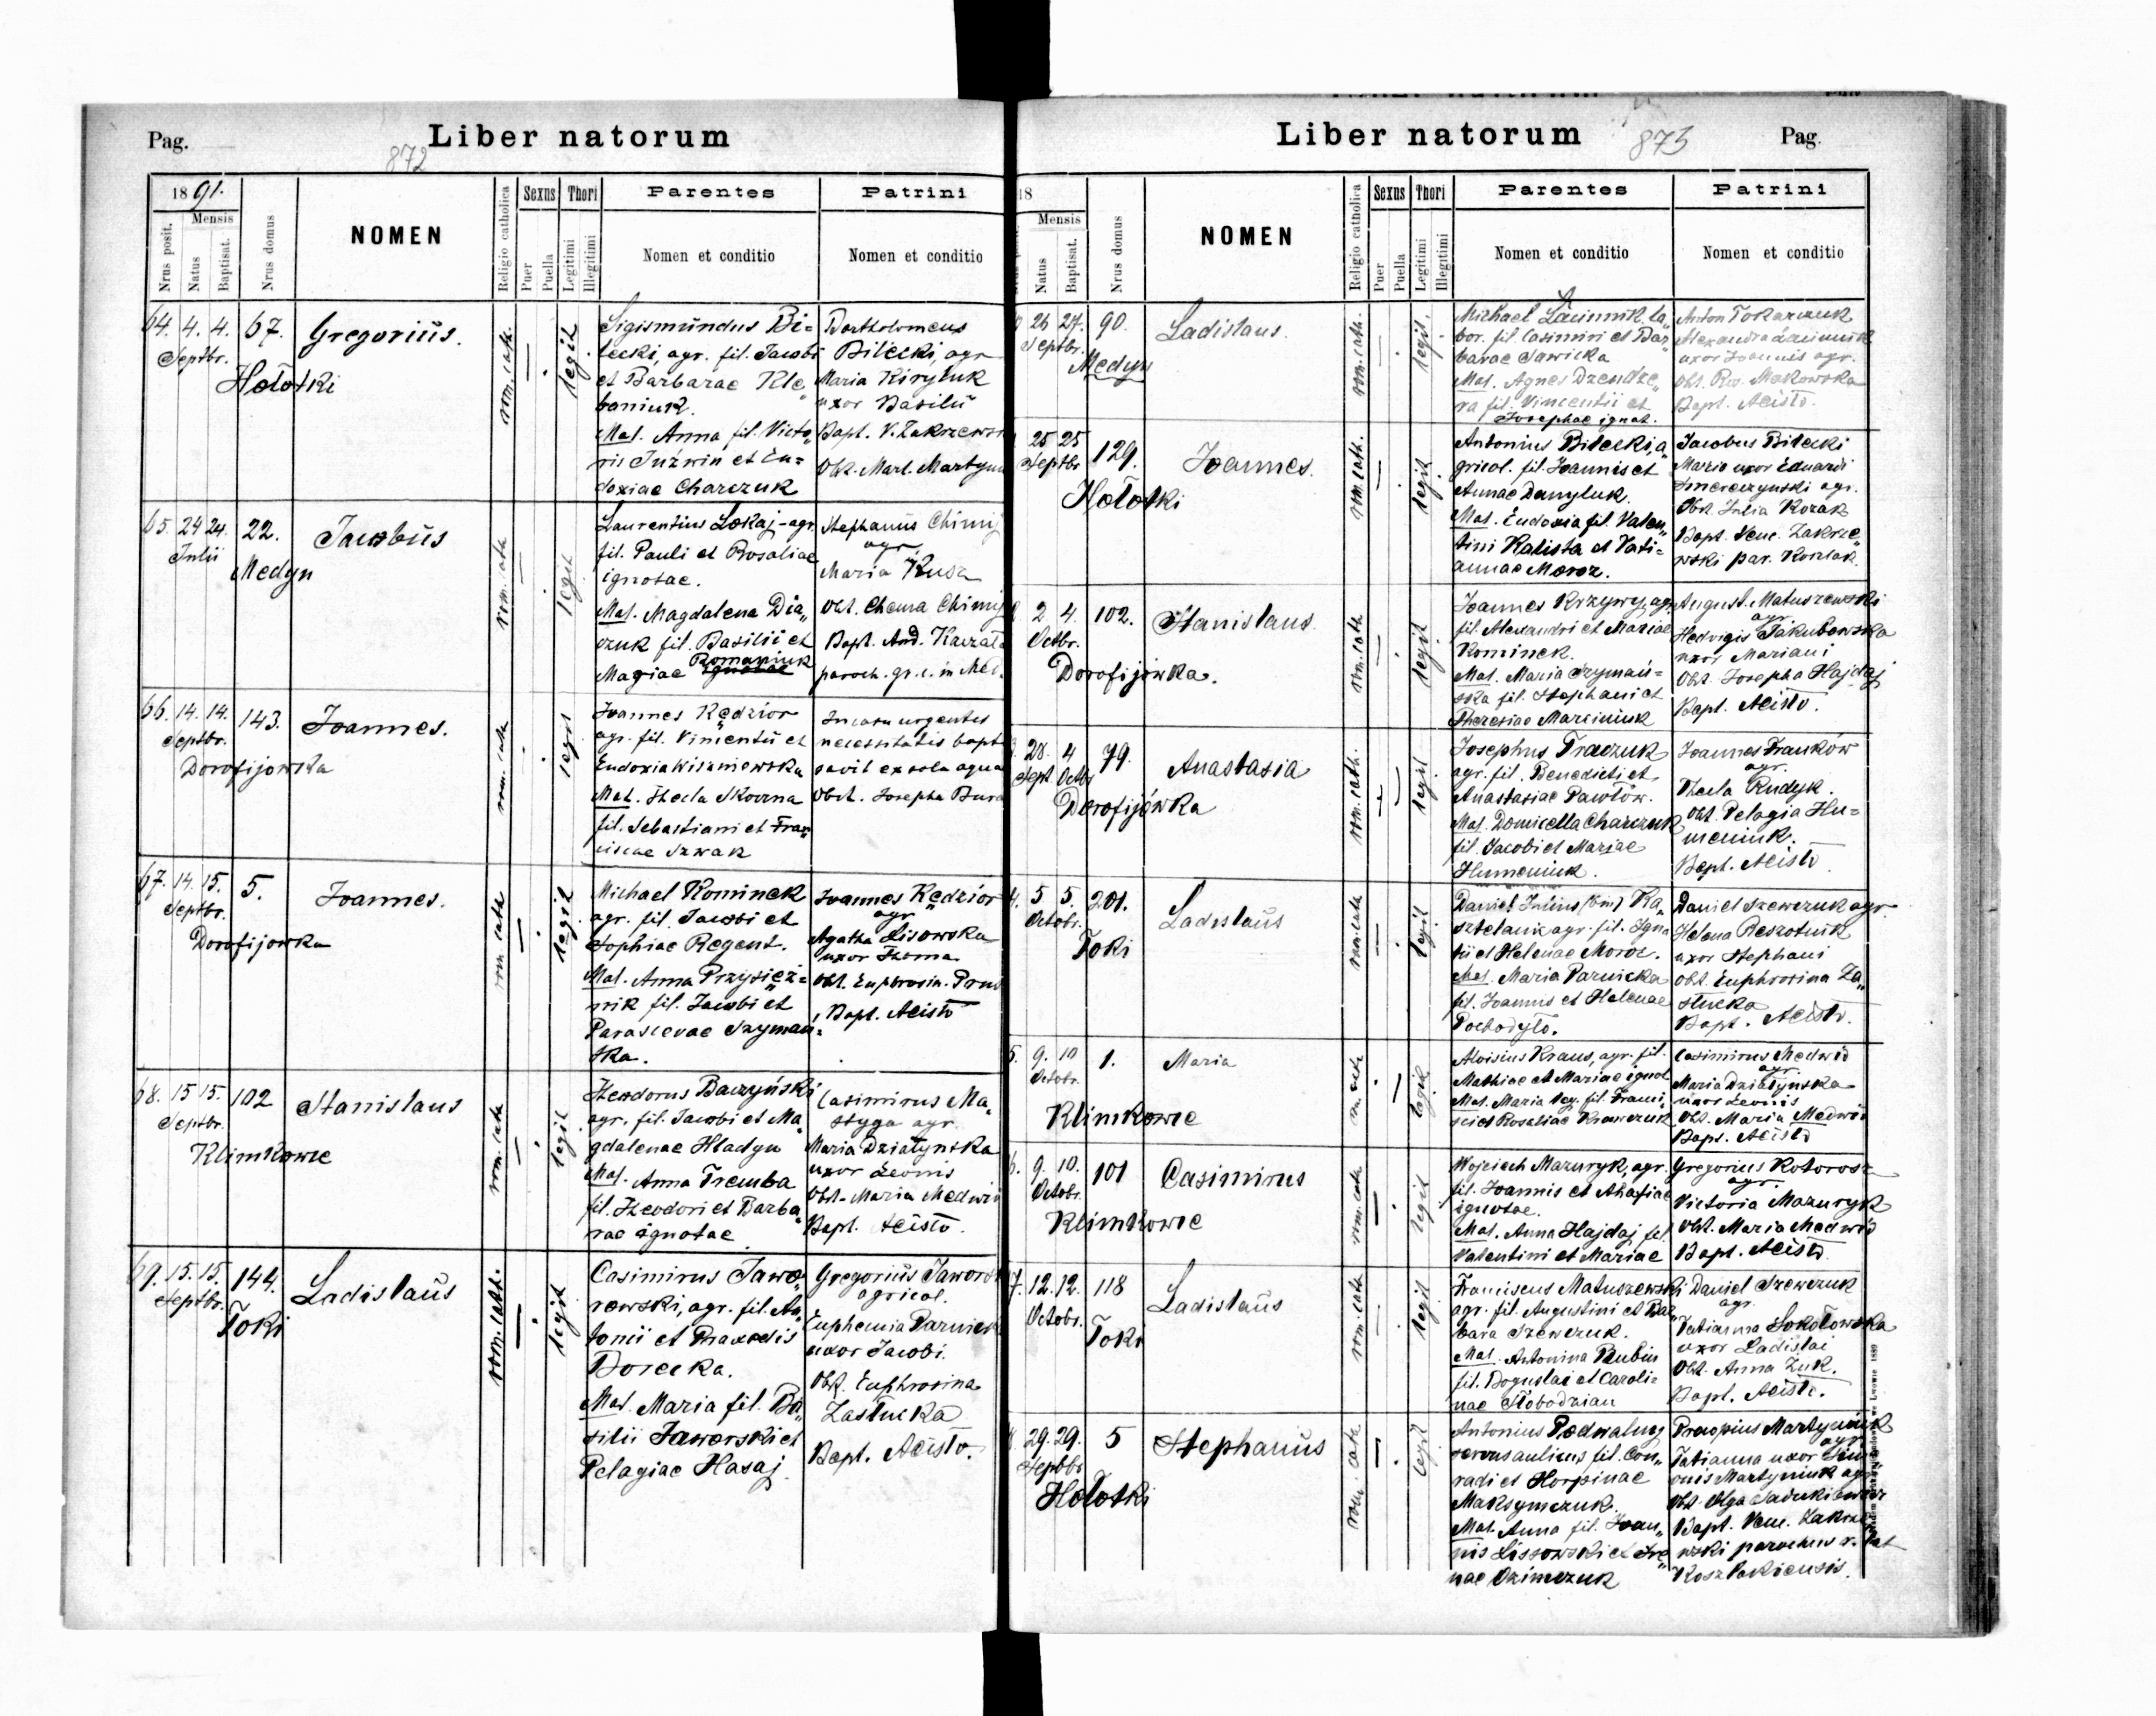 Pag.
Liber natorum
872
1891.
Nrus posit.
Mensis
Natus
Baptisat.
Nrus domus
NOMEN
Religio catholica
Sexus
Puer
Puella
Thori
Legitimi
Illegitimi
Parentes
Nomen et conditio
Patrini
Nomen et conditio
64. 4. 4. 67. Gregoriŭs.
Septbr.
Hołotki
rom. cath.
legit
Sigismŭndus Bi=
lecki, agr. fil. Jacobi
et Barbarae Kle„
baniuk.
Mat. Anna fil. Victo„
ris Juźwin et Eu=
doxiae Charczuk
Bartholomeus
Bilecki, agr
Maria Kiryluk
uxor Basilii
Bapt. V. Zakrzewski
Obst. Mart. Martyn
65. 24 24. 22. Jacobŭs
Julii
Medyn
rom. cath
legit
Laurentius Lokaj - agr.
fil. Pauli et Rosaliae
ignotae.
Mat. Magdalena Dia„
czuk fil. Basilii et
Romaniuk
Mariae ignotae
Stephanŭs Chimij
agr.
Maria Kusz
Obst. Chema Chimij
Bapt. And. Kaczała
paroch. gr. c. in Med.
66. 14. 14. 143. Joannes.
Septbr.
Dorofijowka
rom. cath
legit
Joannes Kędzior
agr. fil. Vincentii et
Eudoxia Wiszniewska
Mat. Thecla Skorna
fil. Sebastiani et Fran„
ciscae Szwak
In casu urgentis
necessitatis bapti
savit ex sola aqua
Obst. Josepha Bura
67. 14. 15. 5. Joannes.
Septbr.
Dorofijowka
rom. cath
legit
Michael Kominek
agr. fil. Jacobi et
Sophiae Regent.
Mat. Anna Przysięż=
nik fil. Jacobi et
Parascevae Szymań=
ska.
Joannes Kędzior
agr
Agatha Lisowska
uxor Thoma
Obst. Euphrosin. Prus
Bapt. Acisto
68. 15 15. 102 Stanislaus
Septbr.
Klimkowce
rom. cath
legit
Theodorus Baczyński
agr. fil. Jacobi et Ma„
gdalenae Hladyn
Mat. Anna Tremba
fil. Theodori et Barba„
rae ignotae
Casimirus Ma„
styga agr.
Maria Działynska
uxor Leonis
Obst. Maria Medwid
Bapt. Acisto.
69. 15. 15. 144. Ladislaŭs
Septbr.
Toki
rom. cath.
legit
Casimirus Jawo„
rowski, agr. fil. An„
tonii et Praxedis
Dorecka.
Mat. Maria fil. Ba„
silii Jaworski et
Pelagiae Hasaj.
Gregoriŭs Jaworski
agricol.
Euphemia Parnicka
uxor Jacobi.
Obst. Euphrosina
Zastucka
Bapt. Acisto.
Liber natorum
873
Pag.
18
Mensis
Natus
Baptisat.
Nrus domus
NOMEN
Religio catholica
Sexus
Puer
Puella
Thori
Legitimi
Illegitimi
Parentes
Nomen et conditio
Patrini
Nomen et conditio
26 27. 90. Ladislaus.
Septbr.
Medyn
rom. cath.
legit.
Michael Lacinnik la„
bor. fil. Casimiri et Bar„
barae Sawicka
Mat. Agnes Dzendze„
ra fil. Vincentii et
Josephae ignot.
Anton Tokarczuk
Alexandra Lacinnik
uxor Joannis agr.
Obst. Ros. Makowska
Bapt. Acisto.
25 25 129. Joannes.
Septbr
Hołotki
rom. cath.
legit
Antonius Bilecki, a
gricol. fil. Joannis et
Annae Danyluk.
Mat. Eudoxia fil. Valen„
tini Kalista et Tati=
annae Moroz.
Jacobus Bilecki
Maria uxor Eduardi
Smereczynski agr.
Obst. Julia Kozak
Bapt. Venc. Zakrze„
wski par. Koszlak.
2 4. 102. Stanislaus.
Octbr.
Dorofijówka.
rom. cath
legit
Joannes Krzywy, agr.
fil. Alexandri et Mariae
Kominek.
Mat. Maria Szymań=
ska fil. Stephani et
Theresiae Marciniuk
August. Matuszewski
agr.
Hedvigis Jakubowska
uxor Mariani
Obst. Josepha Hajdaj
Bapt. Acisto.
28. 4 79. Anastasia
Sept. Octbr
Dorofijówka
rom. cath.
legit
Josephus Traczuk
agr. fil. Benedicti et
Anastasiae Pawłów.
Mat. Domicella Charczuk
fil. Jacobi et Mariae
Humeniuk.
Joannes Franków
agr.
Thecla Rudyk.
Obst. Pelagia Hu=
meniuk.
Bapt. Acisto
4. 5 5. 201. Ladislaŭs
Octobr.
Toki
rom. cath
legit
Daniel Julius (bin) Ka„
sztelanik agr. fil. Igna
tii et Helenae Moroz.
Mat. Maria Parnicka
fil. Joannis et Helenae
Pochodyło.
Daniel Szewczuk agr.
Helena Reszotnik
uxor Stephani
Obst. Euphrosina Za„
stucka
Bapt. Acisto.
5. 9. 10 1. Maria
Octobr.
Klimkowce
legit
Aloisius Kraus, agr. fil.
Mathiae et Mariae ignot
Mat. Maria Veg. fil. Franci„
sci et Rosaliae Krawczuk
Casimirus Medwid
agr.
Maria Działynska
uxor Leonis
Obst. Maria Medwid
Bapt. Acisto
6. 9. 10. 101 Casimirus
Octobr.
Klimkowce
rom. cath
legit
Wojciech Mazuryk, agr.
fil. Joannis et Ahafiae
ignotae.
Mat. Anna Hajdaj fil.
Valentini et Mariae
Gregorius Kotorosz
agr.
Victoria Mazuryk
Obst. Maria Medwid
Bapt. Acisto.
7. 12. 12. 118 Ladislaŭs
Octobr.
Toki
rom. cath
legit
Franciscus Matuszewski
agr. fil. Augustini et Bar„
bara Szewczuk.
Mat. Antonina Rubin
fil. Boguslai et Caroli=
nae Słobodzian
Daniel Szewczuk
agr.
Tatianna Sokołowska
uxor Ladislai
Obst. Anna Żuk.
Bapt. Acisto.
29. 29. 5 Stephanŭs
Septbr
Hołotki
rom. cath
legit
Antonius Podwalny
servus aulicus fil. Con„
radi et Horpinae
Maksymczuk.
Mat. Anna fil. Joan„
nis Lissowski et Ire„
nae Ozimczuk
Procopius Martyniuk
agr.
Tatianna uxor Sim
onis Martyniuk agr.
Obst. Olga Sadukiewicz
Bapt. Venc. Zakrze
wski parochus r. lat
Koszlakiensis.